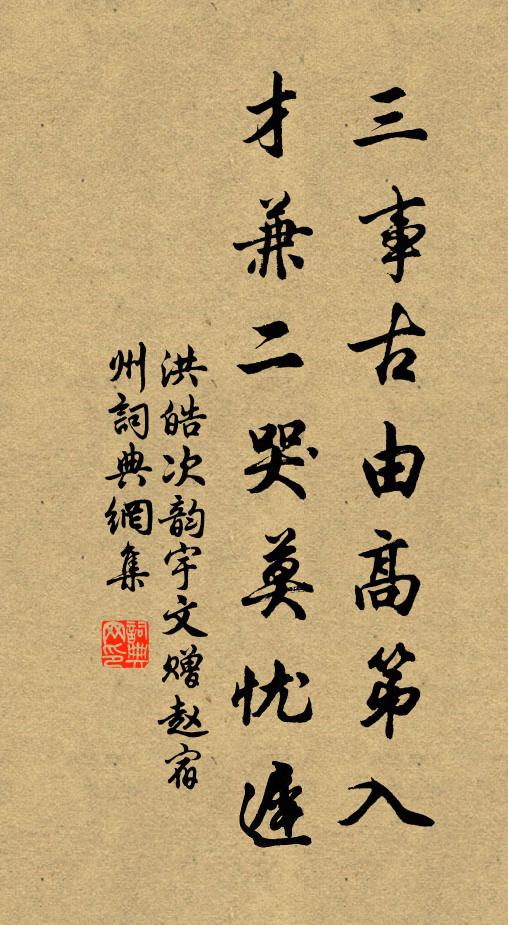 三事古由高第入
才兼二哭莫忧遲
洪皓次韵宇文赠赵宿
州詞典網集
詞典网印